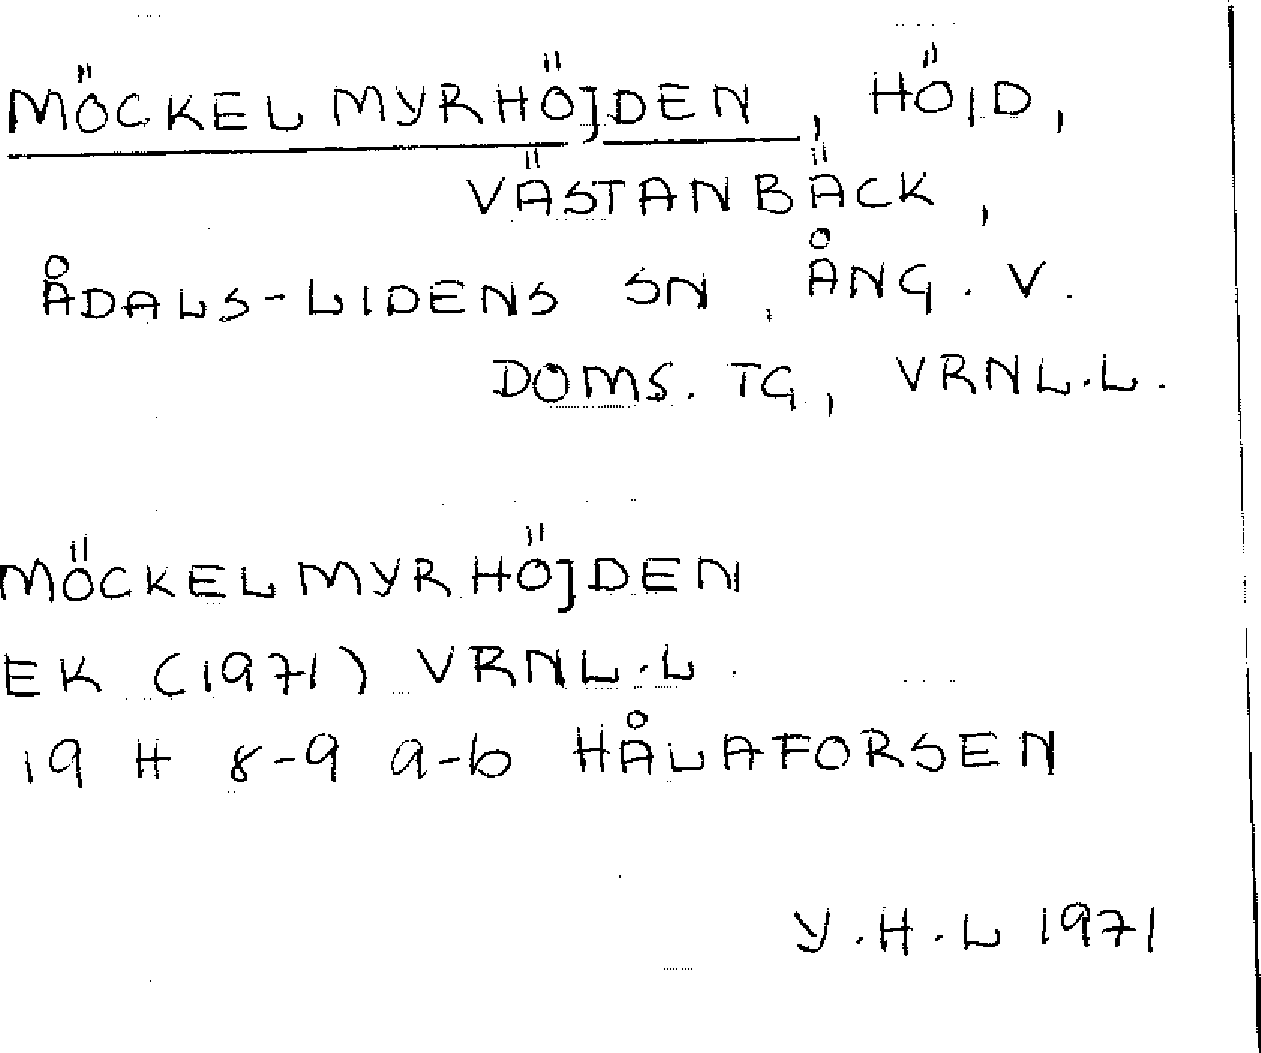 MÖCKELMYRHÖJDEN, HÖJD,
VÄSTANBÄCK,
ÅDALS-LIDENS SN, ÅNG. V.
DOMS. TG, VRNL.L.
MÖCKELMYRHÖJDEN
EK (1971) VRNL.L.
19 H 8-9 a-b HÅLAFORSEN
Y.H.L 1971